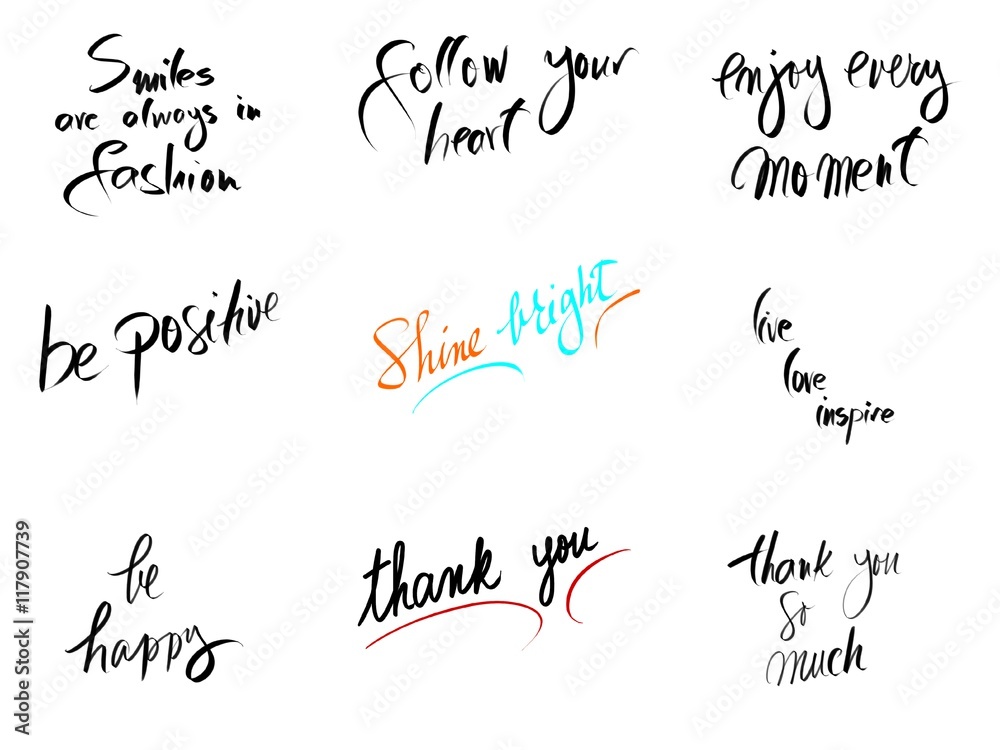 Smiles
are always in
fashion
follow your
heart
enjoy every
moment
be positive
Shine bright
live
love
inspire
be
happy
thank you
thank you
so
much
Adobe Stock | #117907739